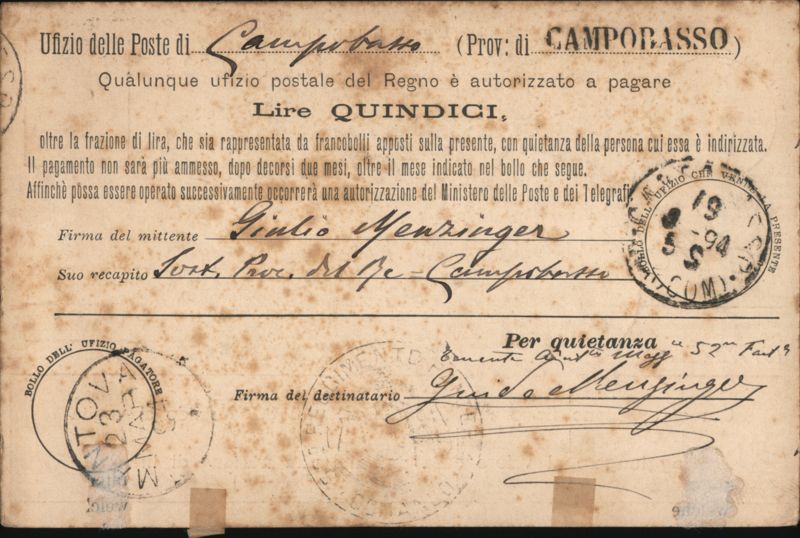 Ufizio delle Poste di Campobasso (Prov: di CAMPOBASSO)
Qualunque ufizio postale del Regno è autorizzato a pagare
Lire QUINDICI,
oltre la frazione di lira, che sia rappresentata da francobolli apposti sulla presente, con quietanza della persona cui essa è indirizzata.
Il pagamento non sarà più ammesso, dopo decorsi due mesi, oltre il mese indicato nel bollo che segue.
Affinchè possa essere operato successivamente occorrerà una autorizzazione del Ministero delle Poste e dei Telegrafi
BOLLO DELL' UFIZIO CHE VENDE LA PRESENTE
19
94
5 S
(COM)
Firma del mittente Giulio Menzinger
Suo recapito Sost. Proc. del Re - Campobasso
Per quietanza
52
BOLLO DELL' UFIZIO PAGATORE
MANTOVA
23
MAR
Firma del destinatario Guido Menzinger
REGGIMENTO